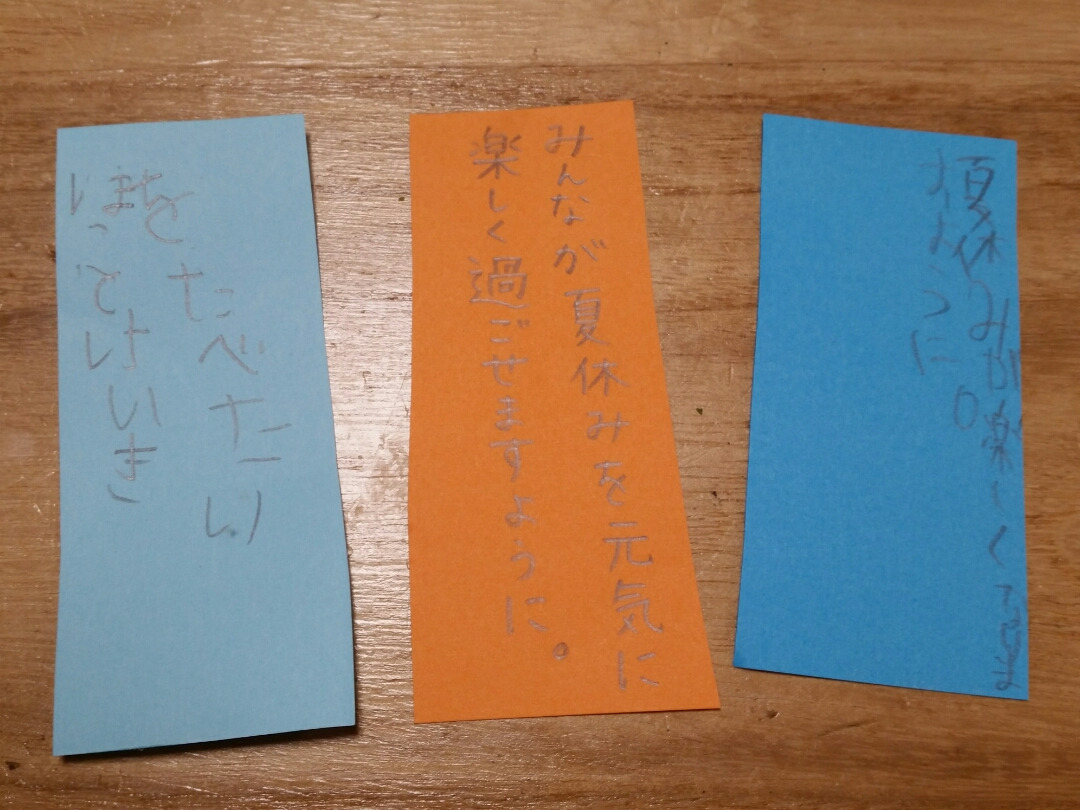 ほっとけいき
をたべたい
みんなが夏休みを元気に
楽しく過ごせますように。
夏休みが楽しく
ように。